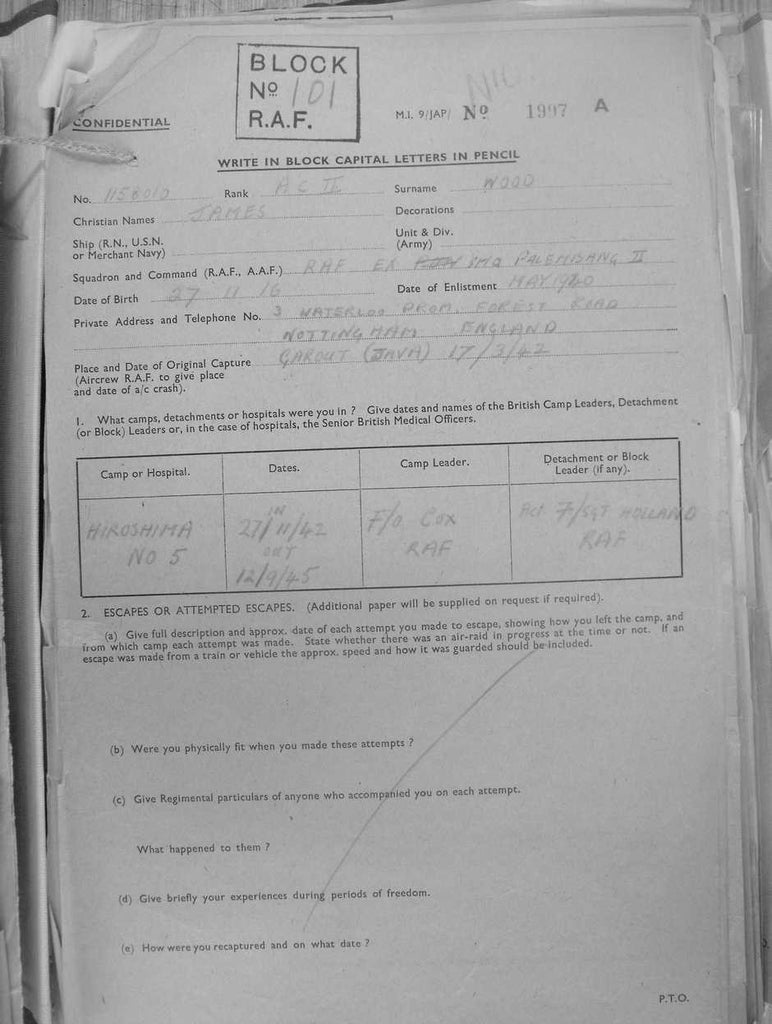 BLOCK
No 101
R.A.F.
CONFIDENTIAL
M.I. 9/JAP/ No 1997 A
NIL
WRITE IN BLOCK CAPITAL LETTERS IN PENCIL
No. 1158010 Rank AC II Surname WOOD
Christian Names JAMES Decorations
Ship (R.N., U.S.N. or Merchant Navy) Unit & Div. (Army)
Squadron and Command (R.A.F., A.A.F.) RAF EX SHQ PALEMBANG II
Date of Birth 27 11 16 Date of Enlistment MAY 1940
Private Address and Telephone No. 3 WATERLOO PROM. FOREST ROAD
NOTTINGHAM ENGLAND
Place and Date of Original Capture GAROUT (JAVA) 17/3/42
(Aircrew R.A.F. to give place
and date of a/c crash).
1. What camps, detachments or hospitals were you in ? Give dates and names of the British Camp Leaders, Detachment
(or Block) Leaders or, in the case of hospitals, the Senior British Medical Officers.
Camp or Hospital. Dates. Camp Leader. Detachment or Block Leader (if any).
HIROSHIMA NO 5
IN 27/11/42 OUT 12/9/45
F/O COX RAF
Act F/SGT HOLLAND RAF
2. ESCAPES OR ATTEMPTED ESCAPES. (Additional paper will be supplied on request if required).
(a) Give full description and approx. date of each attempt you made to escape, showing how you left the camp, and
from which camp each attempt was made. State whether there was an air-raid in progress at the time or not. If an
escape was made from a train or vehicle the approx. speed and how it was guarded should be included.
(b) Were you physically fit when you made these attempts ?
(c) Give Regimental particulars of anyone who accompanied you on each attempt.
What happened to them ?
(d) Give briefly your experiences during periods of freedom.
(e) How were you recaptured and on what date ?
P.T.O.